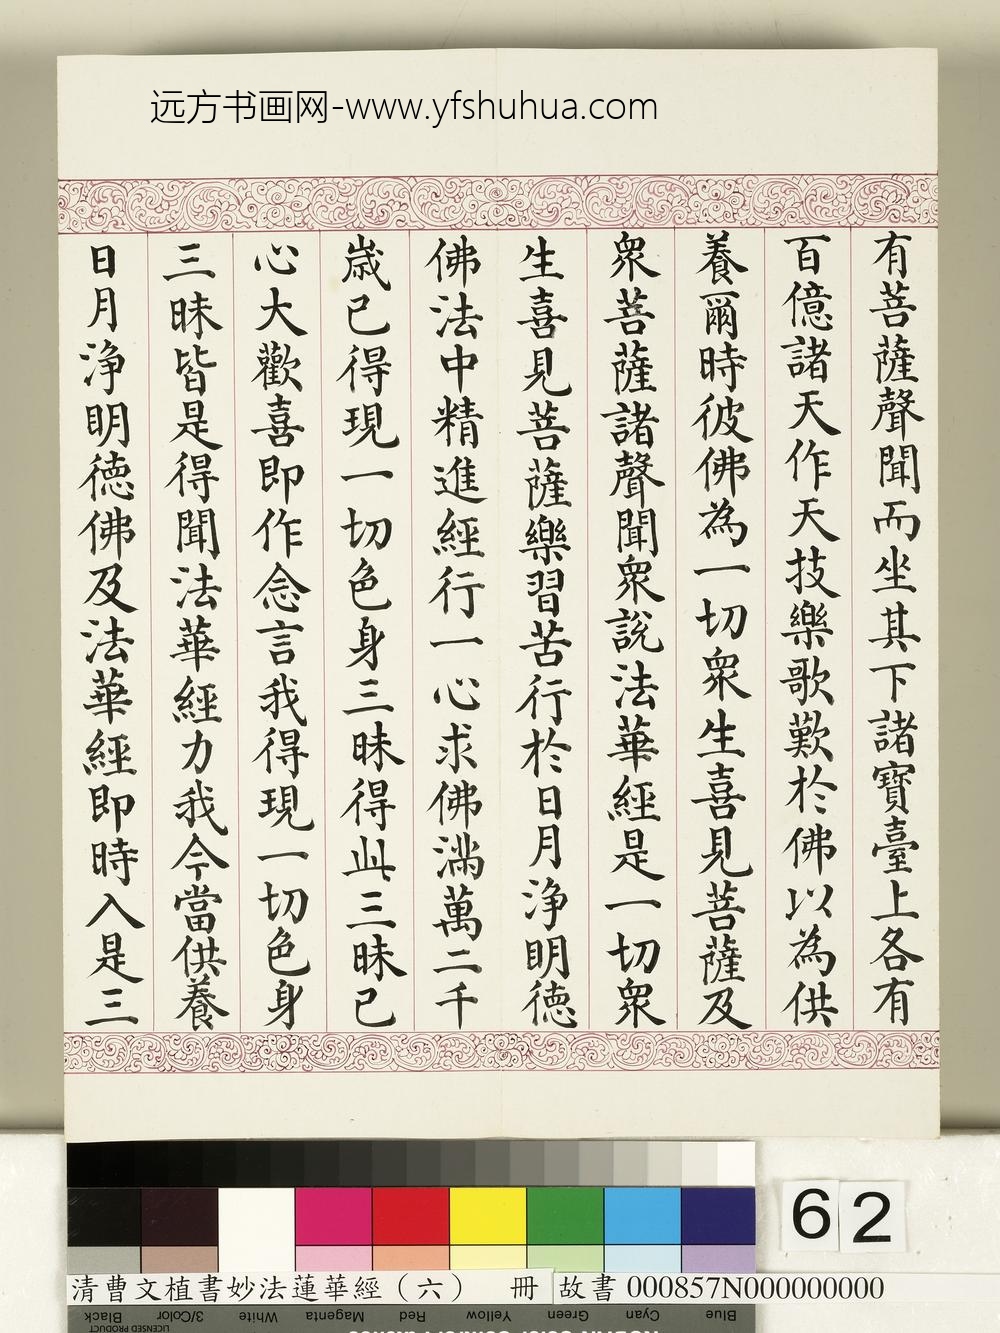 远方书画网-www.yfshuhua.com
有菩薩聲聞而坐其下諸寶臺上各有
百億諸天作天技樂歌歎於佛以為供
養爾時彼佛為一切眾生喜見菩薩及
眾菩薩諸聲聞眾說法華經是一切眾
生喜見菩薩樂習苦行於日月淨明德
佛法中精進經行一心求佛滿萬二千
歲已得現一切色身三昧得此三昧已
心大歡喜即作念言我得現一切色身
三昧皆是得聞法華經力我今當供養
日月淨明德佛及法華經即時入是三
62
清曹文植書妙法蓮華經（六） 冊 故書 000857N000000000
Black 3/Color White Magenta Red Yellow Green Cyan Blue
LICENSED PRODUCT